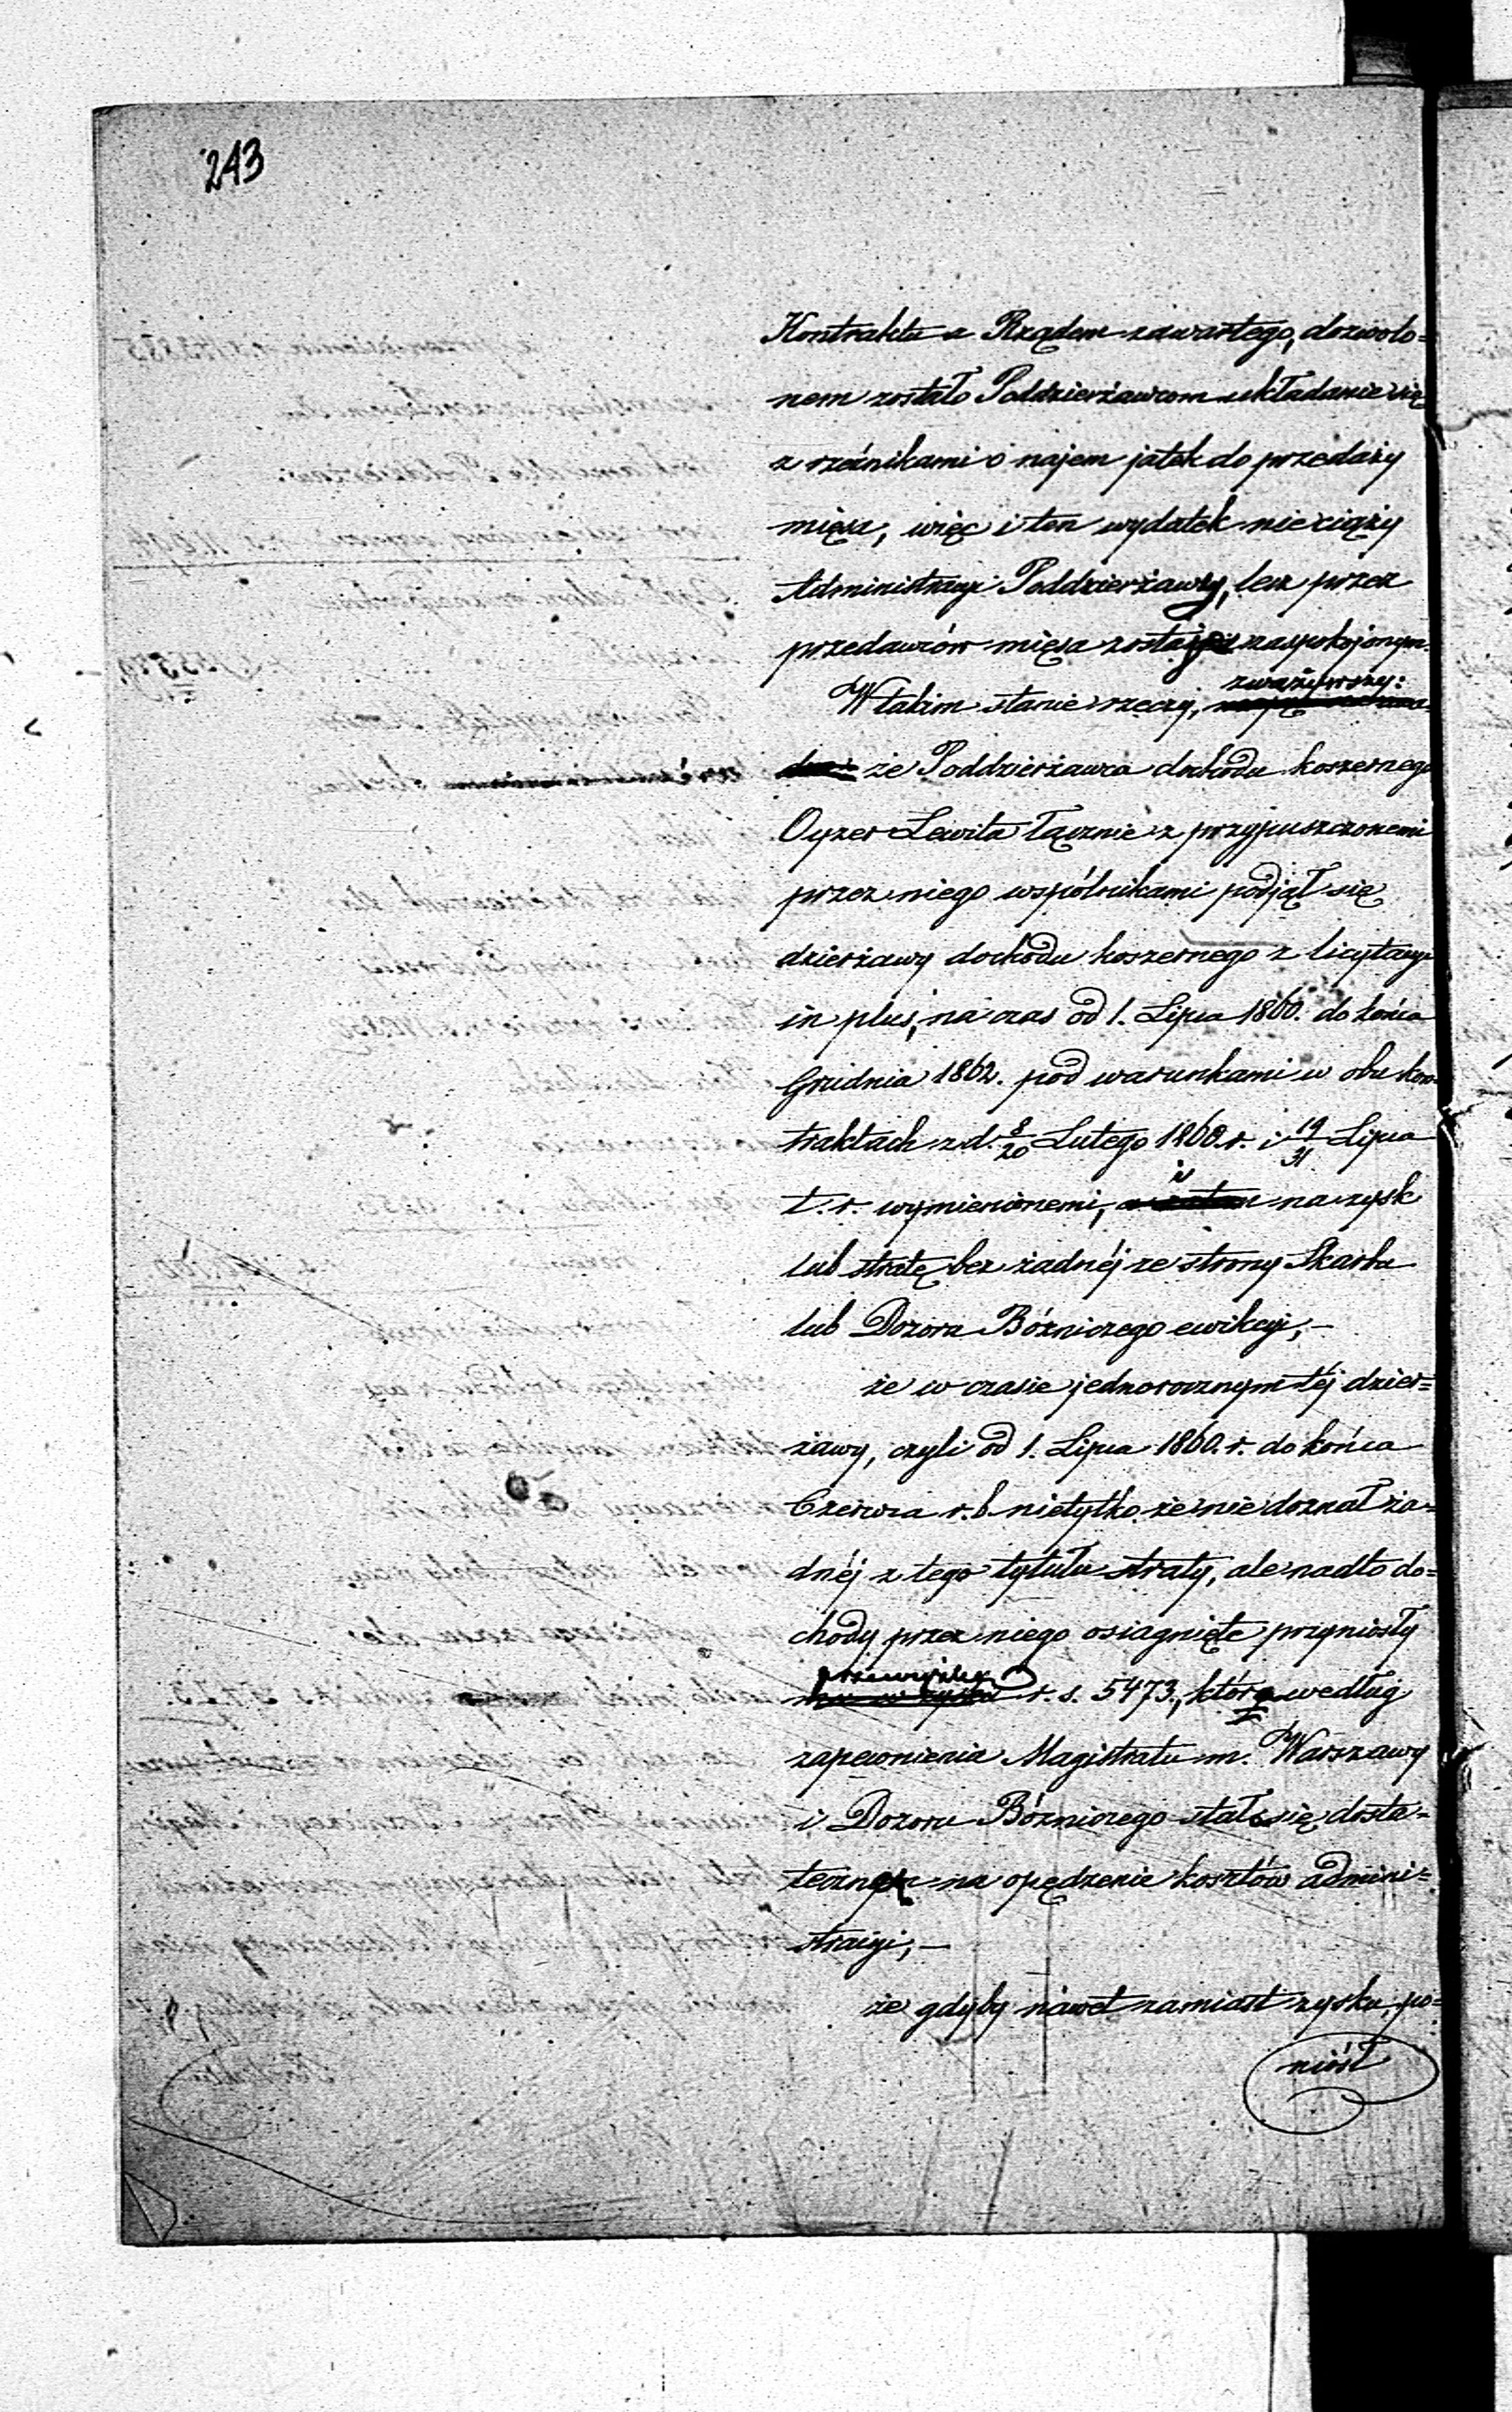 243
Kontraktu z Rządem zawartego, dozwolo=
nem zostało Poddzierżawcom układanie się
z rzeźnikami o najem jatek do przedaży
mięsa, więc i ten wydatek nie ciąży
Administracyi Poddzierżawy, lecz przez
przedawców mięsa zostaje zaspokojonym.
W takim stanie rzeczy, zważywszy:
że Poddzierżawca dochodu koszernego
Oyzer Lewita łącznie z przypuszczonemi
przez niego wspólnikami podjął się
dzierżawy dochodu koszernego z licytacyi
in plus, na czas od 1. Lipca 1860. do końca
Grudnia 1862. pod warunkami w obu kon=
traktach z d. 8/20 Lutego 1860. r. i 19/31 Lipca
t. r. wymienionemi, i na zysk
lub stratę bez żadnéj ze strony Skarbu
lub Dozoru Bóżniczego ewikcyi, –
że w czasie jednorocznym téj dzier=
żawy, czyli od 1. Lipca 1860. r. do końca
Czerwca r. b. nietylko że nie doznał ża=
dnéj z tego tytułu straty, ale nadto do=
chody przez niego osiagnięte przyniosły
przewyżkę r. s. 5473., która według
zapewnienia Magistratu m. Warszawy
i Dozoru Bózniczego stała się dosta=
teczną na opędzenie kosztów admini=
stracyi, –
że gdyby nawet zamiast zysku, po=
niósł